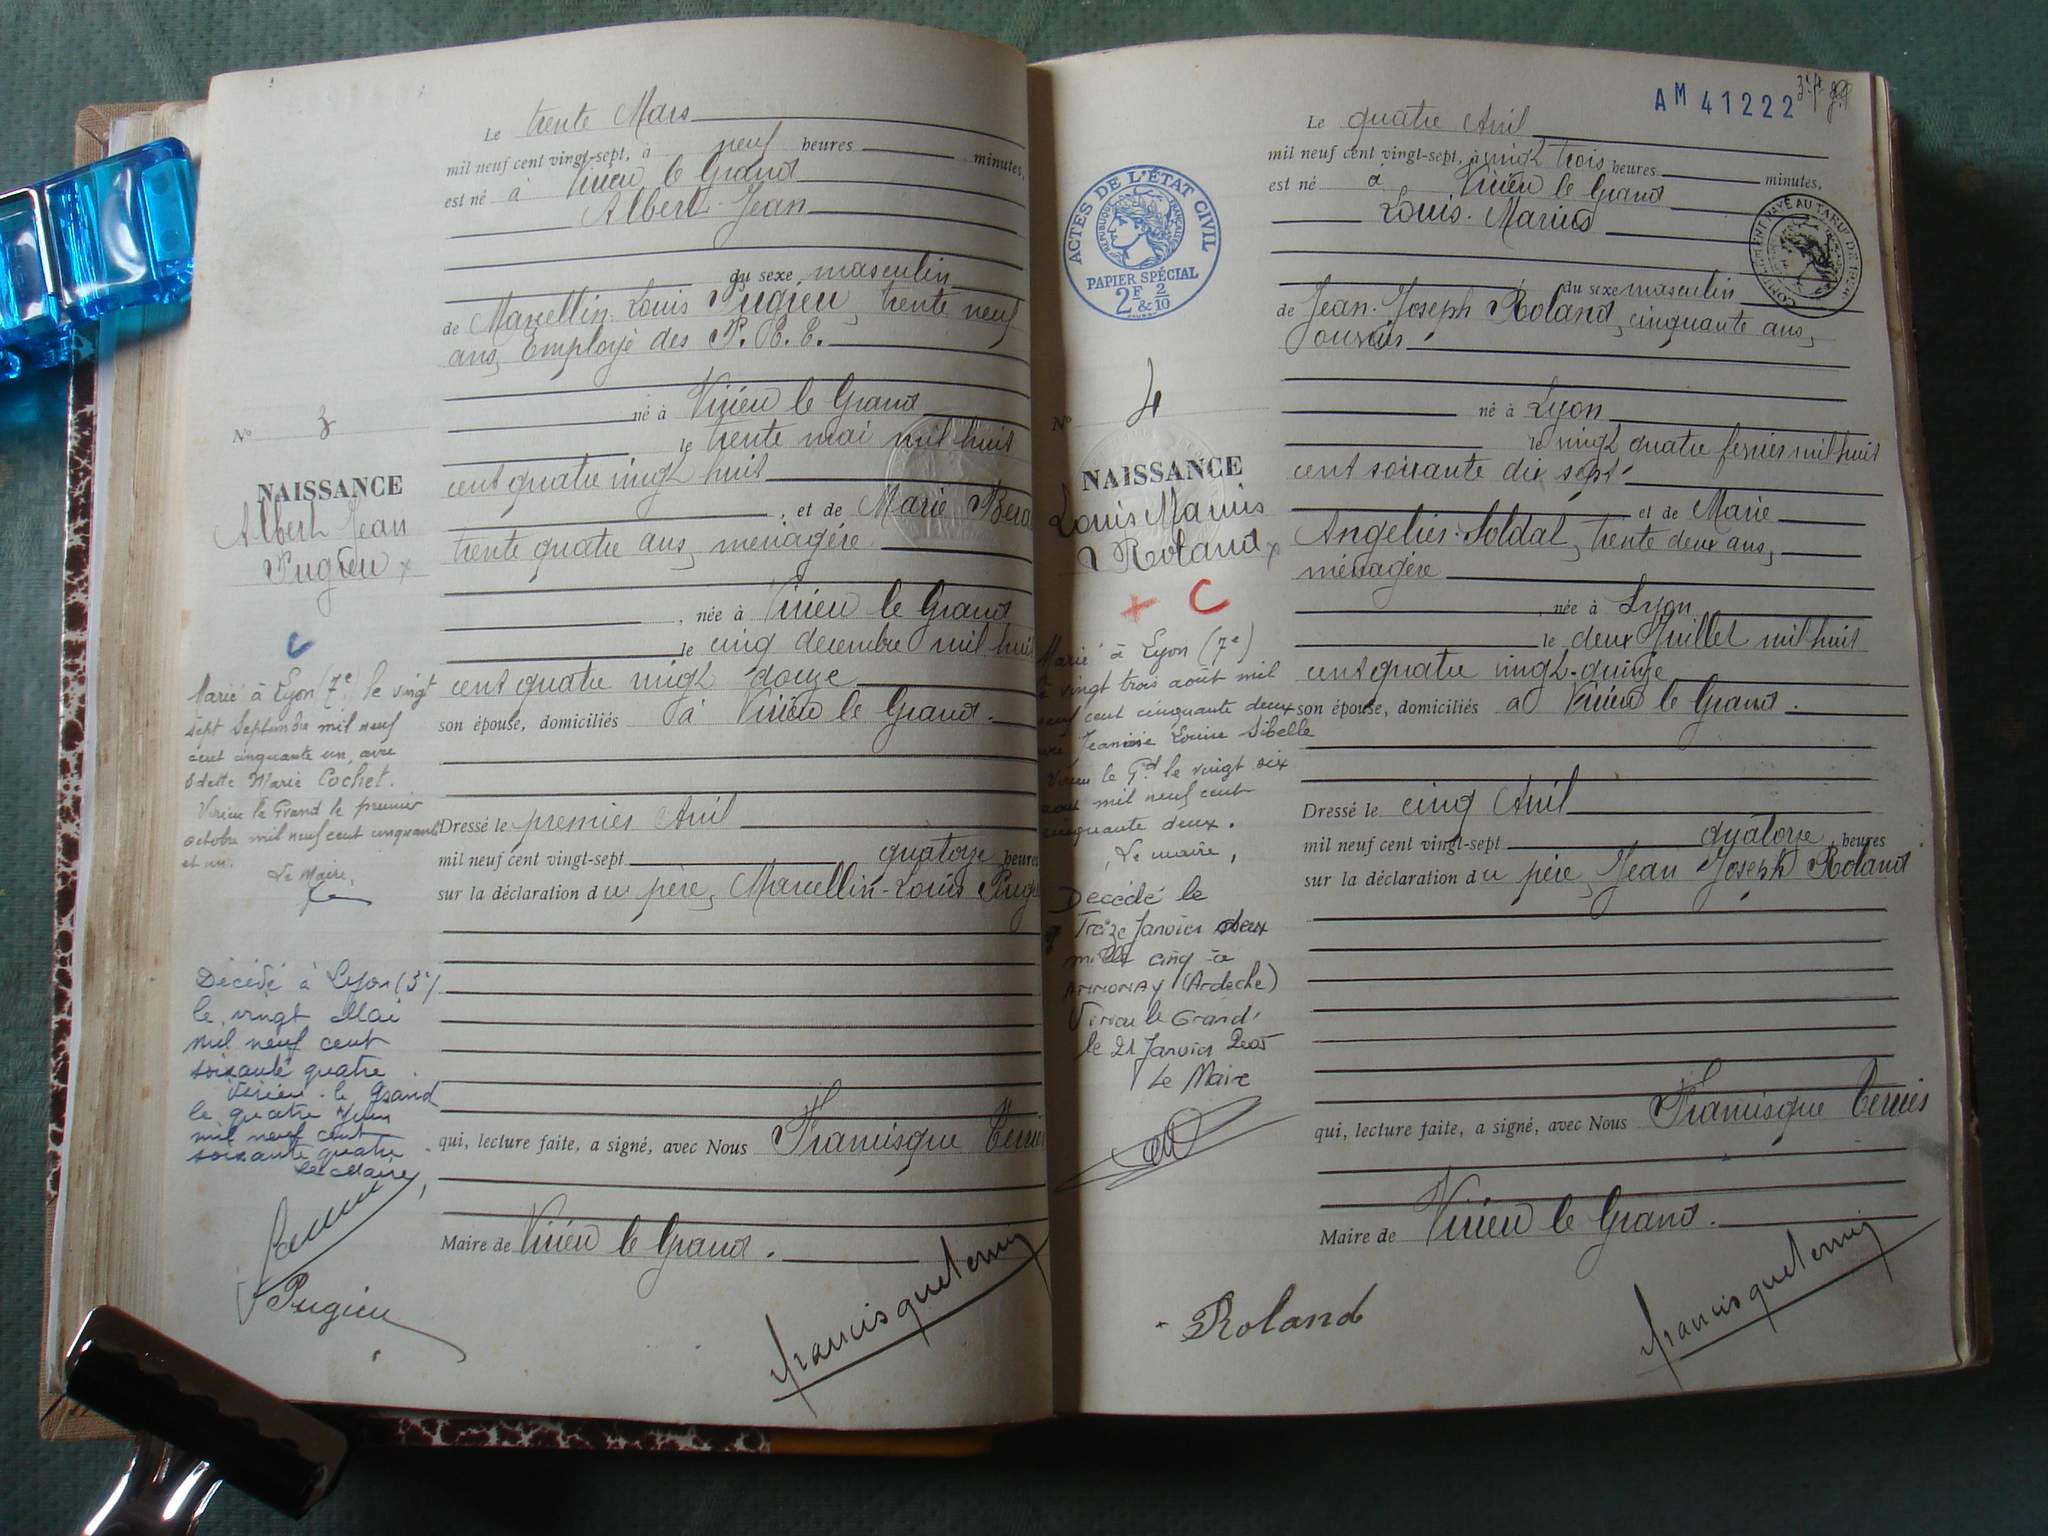 Le trente Mars
mil neuf cent vingt-sept, à neuf heures minutes,
est né à Virieu le Grand
Albert Jean
du sexe masculin
de Marcellin Louis Pugieu, trente neuf
ans, Employé des P.T.T.
né à Virieu le Grand
le trente mai mil huit
cent quatre vingt huit
, et de Marie
trente quatre ans, ménagère
, née à Virieu le Grand
le cinq decembre mil huit
cent quatre vingt douze
son épouse, domiciliés à Virieu le Grand.
Dressé le premier Avril
mil neuf cent vingt-sept quatorze heures
sur la déclaration du père, Marcellin-Louis
qui, lecture faite, a signé, avec Nous Francisque
Maire de Virieu le Grand.
francisque ternier
Nº 3
NAISSANCE
Albert Jean
Pugieu
Marié à Lyon (7e) le vingt
sept Septembre mil neuf
cent cinquante un, avec
Odette Marie Cochet.
Virieu le Grand le premier
octobre mil neuf cent cinquante
et un.
Le Maire,
Décédé à Lyon (3e)
le vingt Mai
mil neuf cent
soixante quatre
Virieu-le Grand
le quatre Juin
mil neuf cent
soixante quatre
Le Maire,
Pugieu
AM 41222
Le quatre Avril
mil neuf cent vingt-sept, à vingt trois heures minutes,
est né à Virieu le Grand
Louis-Marius
du sexe masculin
de Jean-Joseph Roland, cinquante ans,
né à Lyon
le vingt quatre fevrier mil huit
cent soixante dix sept
et de Marie
Angelier-Soldat, trente deux ans,
ménagère
, née à Lyon
le deux Juillet mil huit
cent quatre vingt-quinze
son épouse, domiciliés à Virieu le Grand.
Dressé le cinq Avril
mil neuf cent vingt-sept quatorze heures
sur la déclaration du père, Jean Joseph Roland
qui, lecture faite, a signé, avec Nous Francisque Ternier
Maire de Virieu le Grand.
Roland
francisque ternier
ACTES DE L'ÉTAT CIVIL
RÉPUBLIQUE FRANÇAISE
PAPIER SPÉCIAL
2F & 2/10
Nº 4
NAISSANCE
Louis Marius
Roland
+ C
Marié à Lyon (7e)
le vingt trois août mil
neuf cent cinquante deux
avec Jeannine Louise Sibelle
Virieu le Gd le vingt six
août mil neuf cent
cinquante deux.
Le maire,
Décédé le
Treize Janvier deux
mille cinq à
ANNONAY (Ardeche)
Virieu le Grand
le 21 Janvier 2005
Le Maire